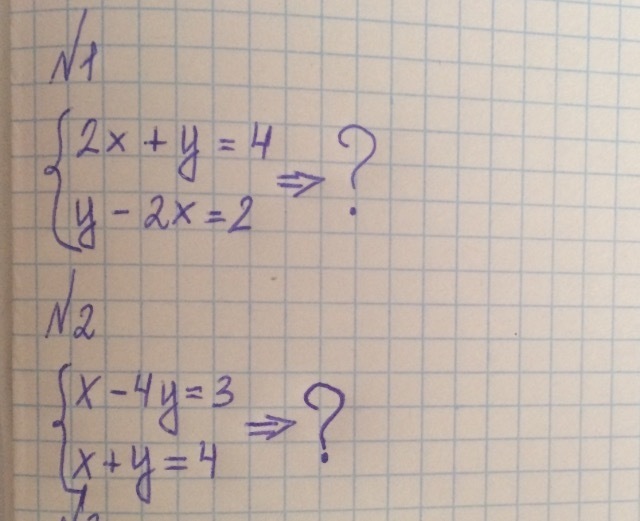 №1
2x + y = 4
y - 2x = 2
⇒ ?
№2
x - 4y = 3
x + y = 4
⇒ ?